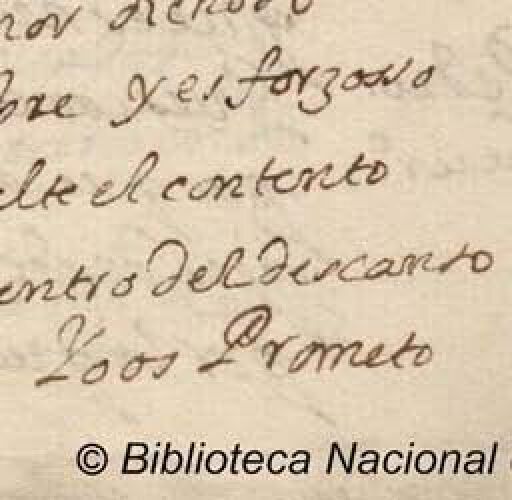 bre y es forzosso
elte el contento
entro del descanso
Yo os Prometo
© Biblioteca Nacional